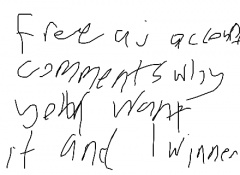 Free ai account
comments why
you want
it and 1 winner